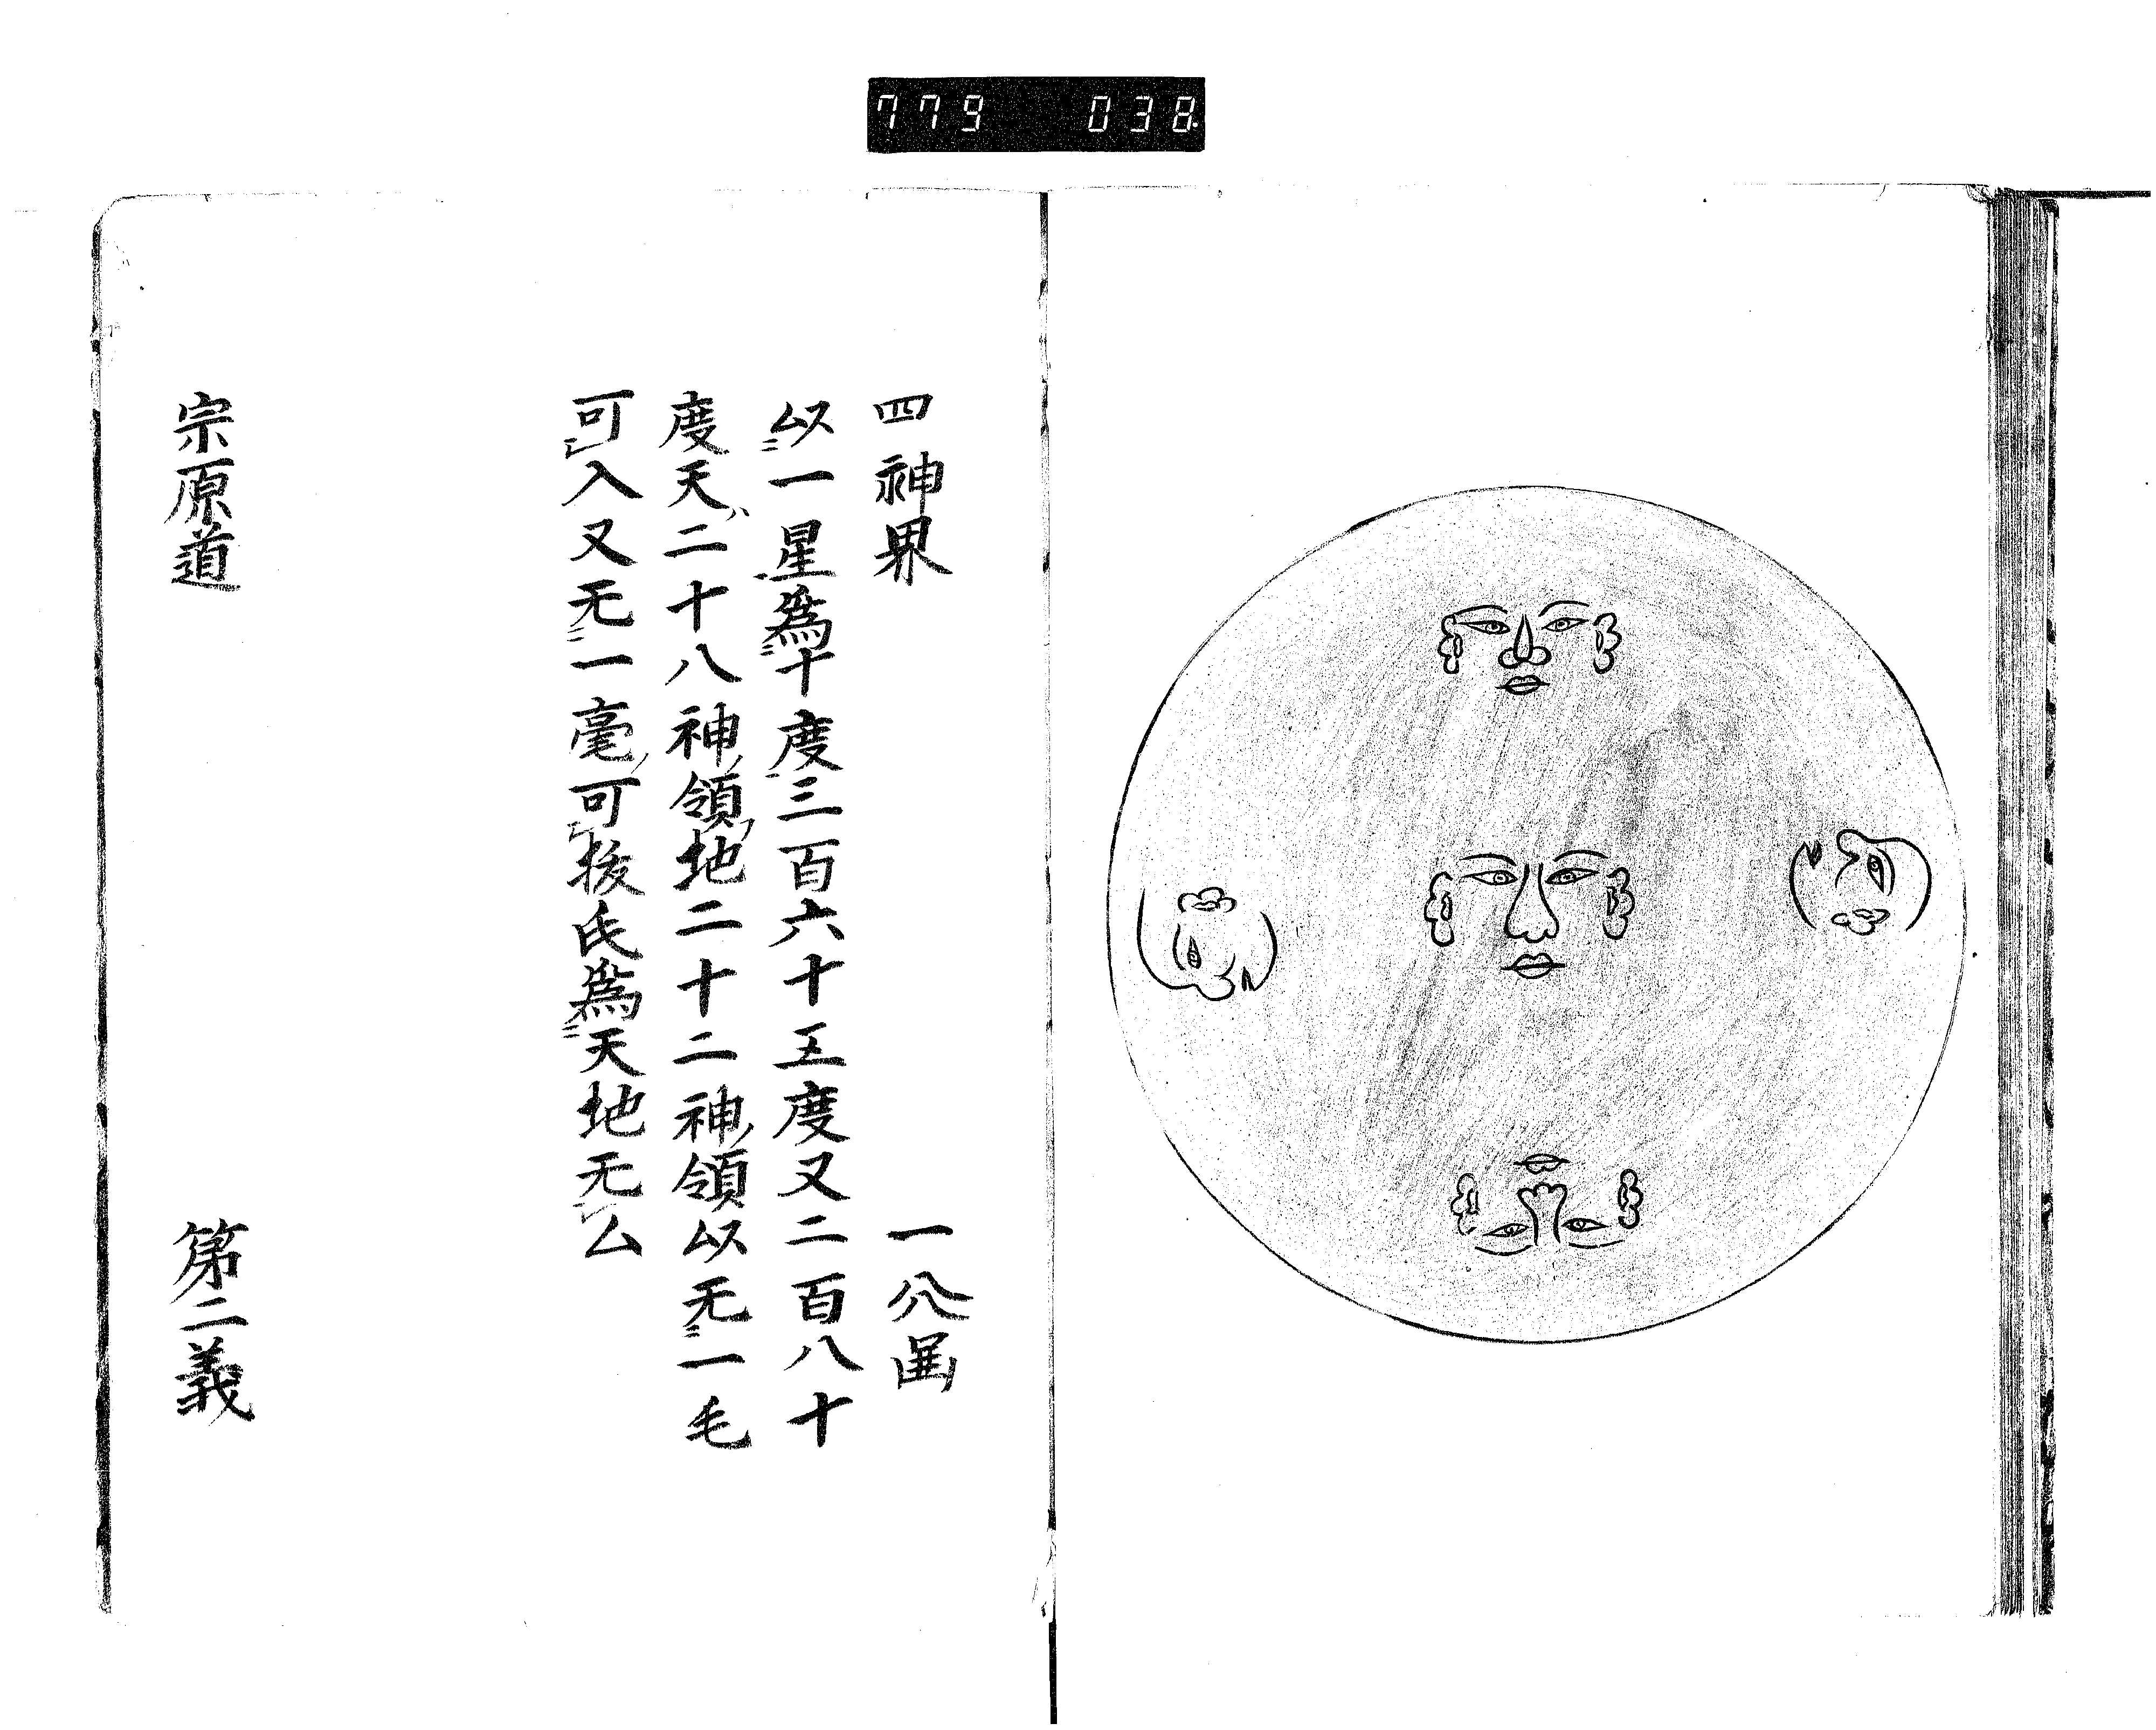 779 038
四神界 一八畐
㕥一星爲十度三百六十五度又二百八十
度天ハ二十八神ノ領ヲ地二十二神ノ領㕥无一毛
可入又无一毫ノ可抜氏爲天地无ム
宗原道 第二義